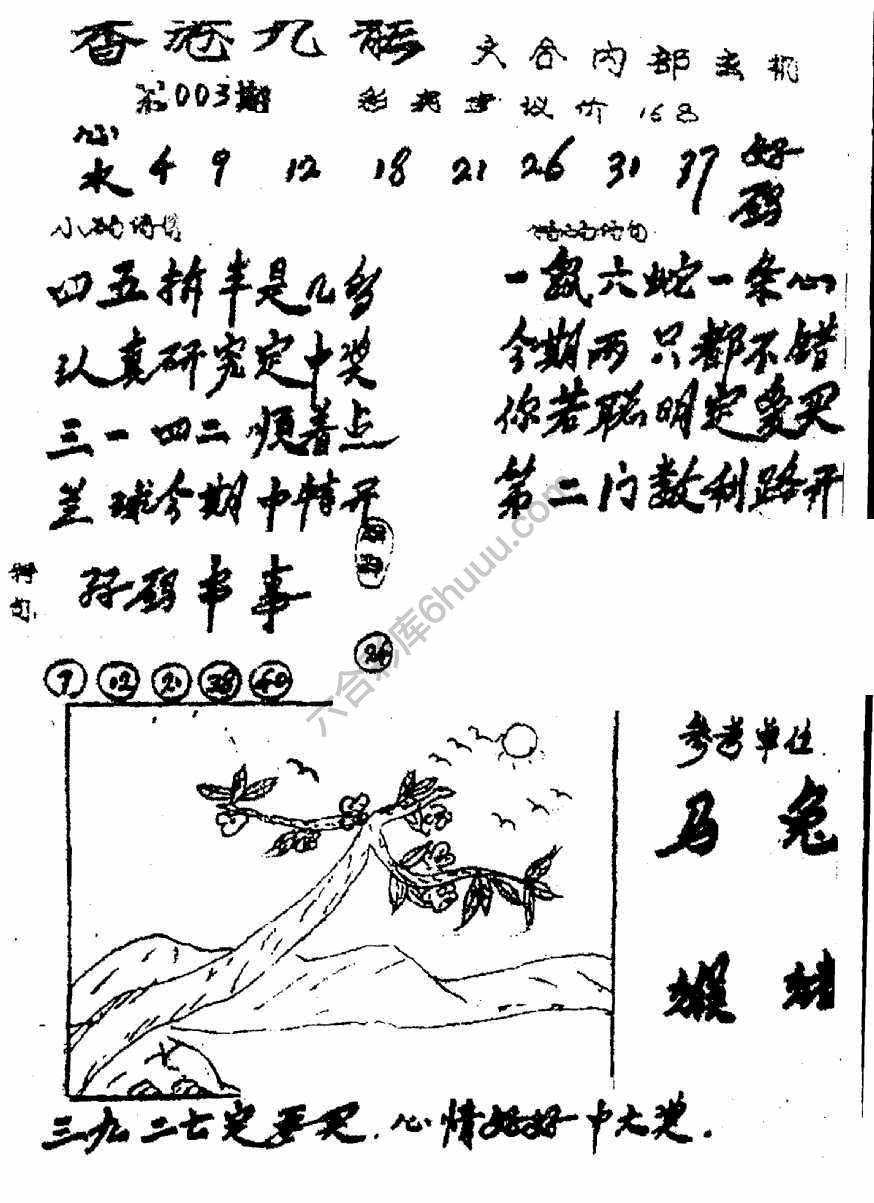 香港九龍
六合内部玄机
第003期
议价 168
心水 4 9 12 18 21 26 31 37 好码
四五拆半是几多
认真研究定中奖
三一四二顺着点
兰球今期中特开
一鼠六蛇一条心
今期两只都不错
你若聪明定要买
第二门数利路开
特句
好码书事
26
9 12 21 38 40
六合彩库6huuu.com
参考单位
马 兔
猴 猪
三九二七定要买.心情好好中大奖.